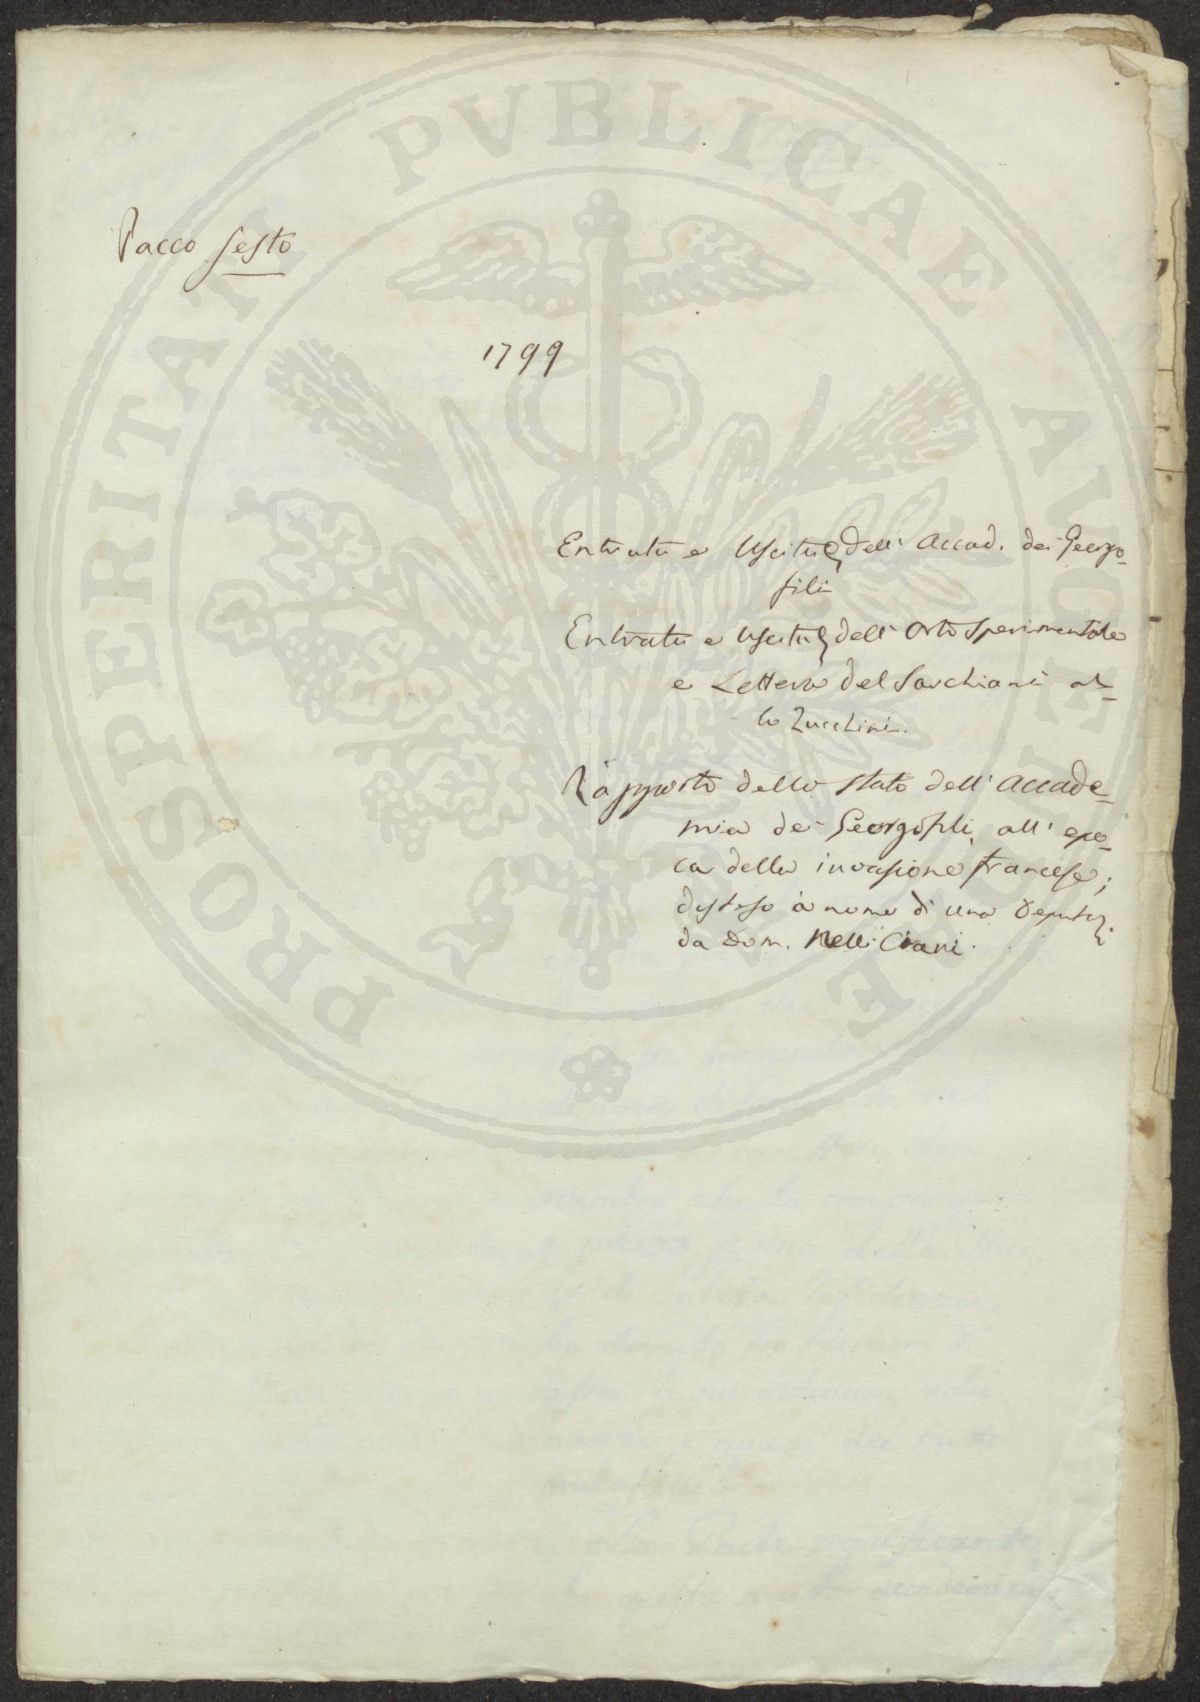 PROSPERITATI PVBLICAE AVGENDAE
Pacco Sesto
1799
Entrata e Uscita dell' Accad. dei Georgo-
fili
Entrata e Uscita dell' Orto Sperimentale
e Lettera del Sarchiani al-
lo Zucchini.
Rapporto dello Stato dell' Accade-
mia dei Georgofili, all' epo-
ca della invasione francese;
disteso a nome di una Deputaz.
da Dom. Nelli Ciani.